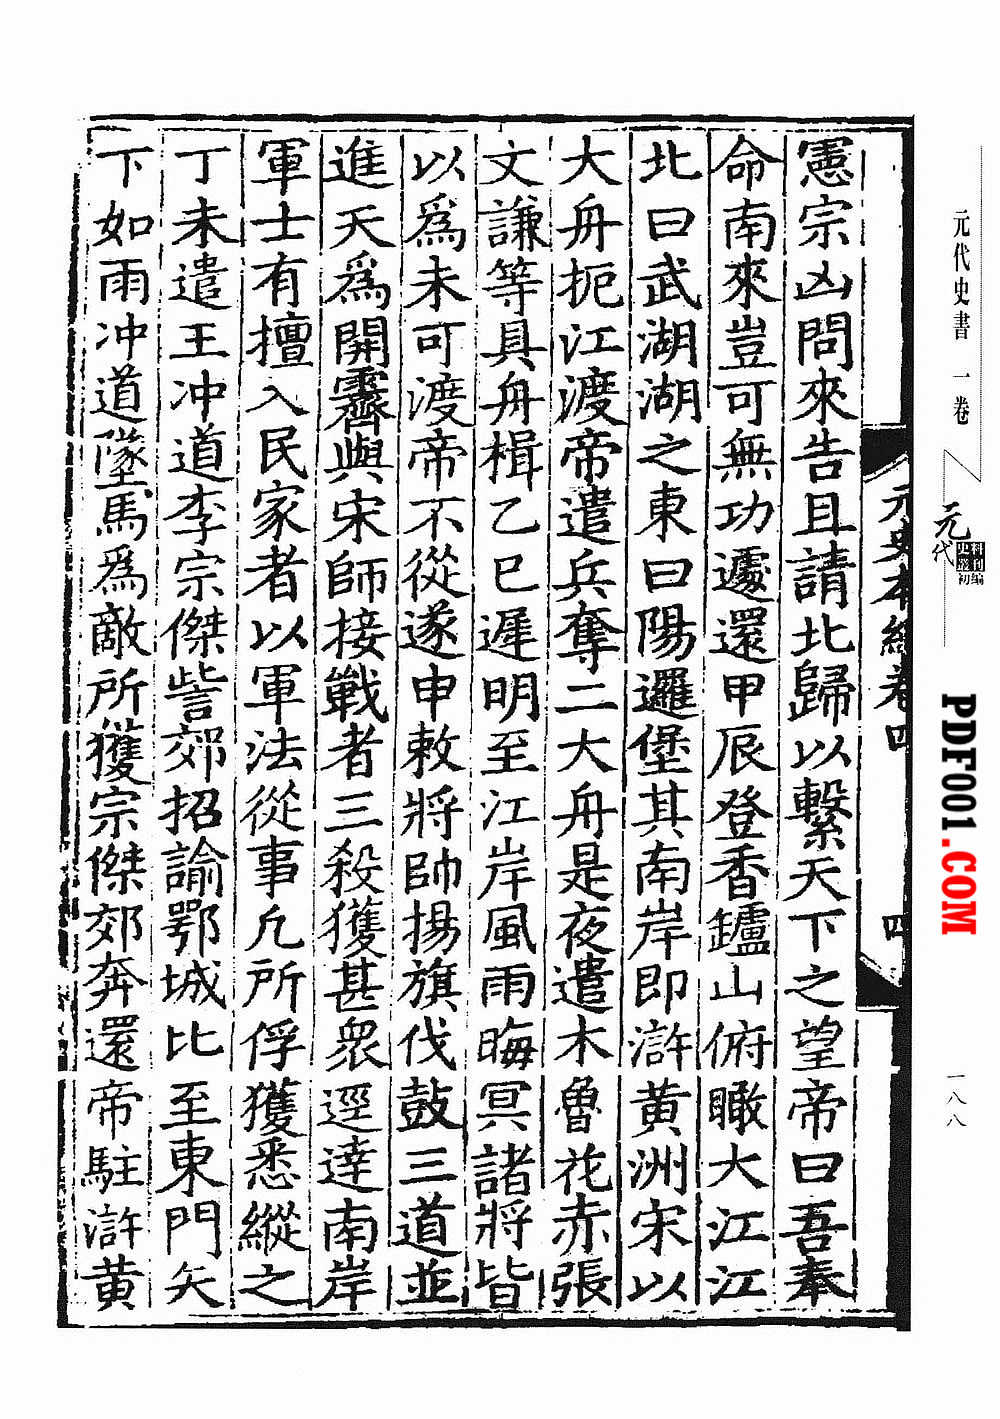 憲宗凶問來告且請北歸以繫天下之望帝曰吾奉
命南來豈可無功遽還甲辰登香鑪山俯瞰大江江
北曰武湖湖之東曰陽邏堡其南岸即滸黄洲宋以
大舟扼江渡帝遣兵奪二大舟是夜遣木魯花赤張
文謙等具舟楫乙巳遲明至江岸風雨晦冥諸將皆
以爲未可渡帝不從遂申敕將帥揚旗伐鼓三道並
進天爲開霽與宋師接戰者三殺獲甚衆逕達南岸
軍士有擅入民家者以軍法從事凡所俘獲悉縱之
丁未遣王冲道李宗傑訾郊招諭鄂城比至東門矢
下如雨冲道墜馬爲敵所獲宗傑郊奔還帝駐滸黄
元史本紀卷四
四
元代史書 一卷
元代
史料叢刊
初编
一八八
PDF001.COM